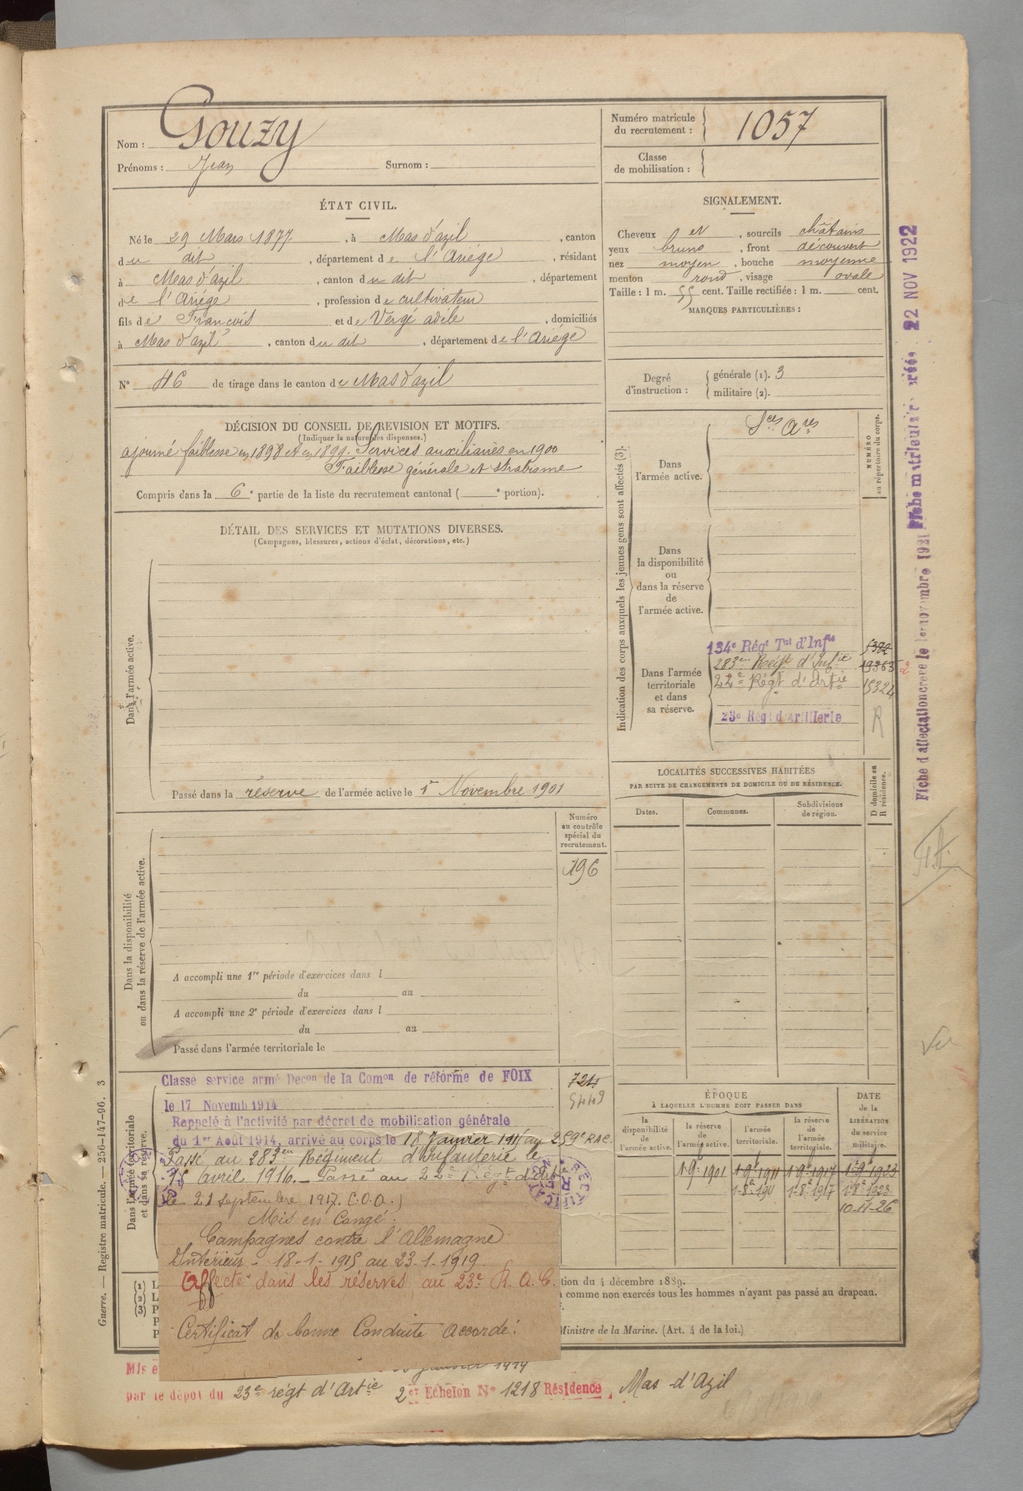 Nom : Gouzy
Prénoms : Jean Surnom :
Numéro matricule du recrutement : 1057
Classe de mobilisation :
ÉTAT CIVIL.
Né le 29 Mars 1877, à Mas d'azil, canton
du dit, département de l'Ariège, résidant
à Mas d'azil, canton du dit, département
de l'Ariège, profession de cultivateur
fils de François et de Vergé adèle, domiciliés
à Mas d'azil, canton du dit, département de l'Ariège
N° 46 de tirage dans le canton de Mas d'azil
SIGNALEMENT.
Cheveux et, sourcils châtains
yeux bruns, front découvert
nez moyen, bouche moyenne
menton rond, visage ovale
Taille : 1 m. 55 cent. Taille rectifiée : 1 m. cent.
MARQUES PARTICULIÈRES :
Degré d'instruction : générale (1). 3
militaire (2).
DÉCISION DU CONSEIL DE REVISION ET MOTIFS.
(Indiquer la nature des dispenses.)
ajourné faiblesse en 1898 et en 1899. Services auxiliaires en 1900
Faiblesse générale et strabisme
Compris dans la 6e partie de la liste du recrutement cantonal ( e portion).
DÉTAIL DES SERVICES ET MUTATIONS DIVERSES.
(Campagnes, blessures, actions d'éclat, décorations, etc.)
Dans l'armée active.
Passé dans la réserve de l'armée active le 1er Novembre 1901
Indication des corps auxquels les jeunes gens sont affectés (3).
NUMÉRO au répertoire du corps.
Dans l'armée active.
Sces Ares
Dans la disponibilité ou dans la réserve de l'armée active.
Dans l'armée territoriale et dans sa réserve.
134e Régt Tal d'Infie
283em Régt d'Infie 19363
22e Régt d'Artie 15324
23e Régt d'artillerie R
LOCALITÉS SUCCESSIVES HABITÉES
PAR SUITE DE CHANGEMENTS DE DOMICILE OU DE RÉSIDENCE.
Dates. Communes. Subdivisions de région. D domicile ou R résidence.
Dans la disponibilité ou dans la réserve de l'armée active.
Numéro au contrôle spécial du recrutement.
196
A accompli une 1re période d'exercices dans l
du au
A accompli une 2e période d'exercices dans l
du au
Passé dans l'armée territoriale le
Dans l'armée territoriale et dans sa réserve.
Classé service armé Decon de la Comon de réforme de FOIX
le 17 Novemb 1914
Rappelé à l'activité par décret de mobilisation générale
du 1er Août 1914, arrivé au corps le 18 Janvier
Passé au 283em Régiment d'Infanterie le
avril 1916. Passé au 22e Régt d'Artie
le 21 Septembre 1917. (O.O.)
Mis en Congé.
Campagnes contre l'Allemagne
Intérieur - 18-1-1915 au 23-1-1919
affecté dans les réserves au 23e R.A.C.
Certificat de bonne Conduite Accordé.
ÉPOQUE
À LAQUELLE L'HOMME DOIT PASSER DANS
la disponibilité de l'armée active. la réserve de l'armée active. l'armée territoriale. la réserve de l'armée territoriale.
DATE de la LIBÉRATION du service militaire.
1-9-1901 1-9-1911 1-9-1917 1-9-1923
1-8-1911 1-8-1917 1-8-1923
10-11-26
tion du 4 décembre 1889.
comme non exercés tous les hommes n'ayant pas passé au drapeau.
Ministre de la Marine. (Art. 4 de la loi.)
par le dépôt du 23e régt d'Artie 2er Echelon N° 1218 Résidence, Mas d'Azil
Guerre. — Registre matricule. — 256-147-96. 3
Fiche d'affectation créée le 1er novembre 1921 Fiche matriculaire créée 22 NOV 1922
Vu